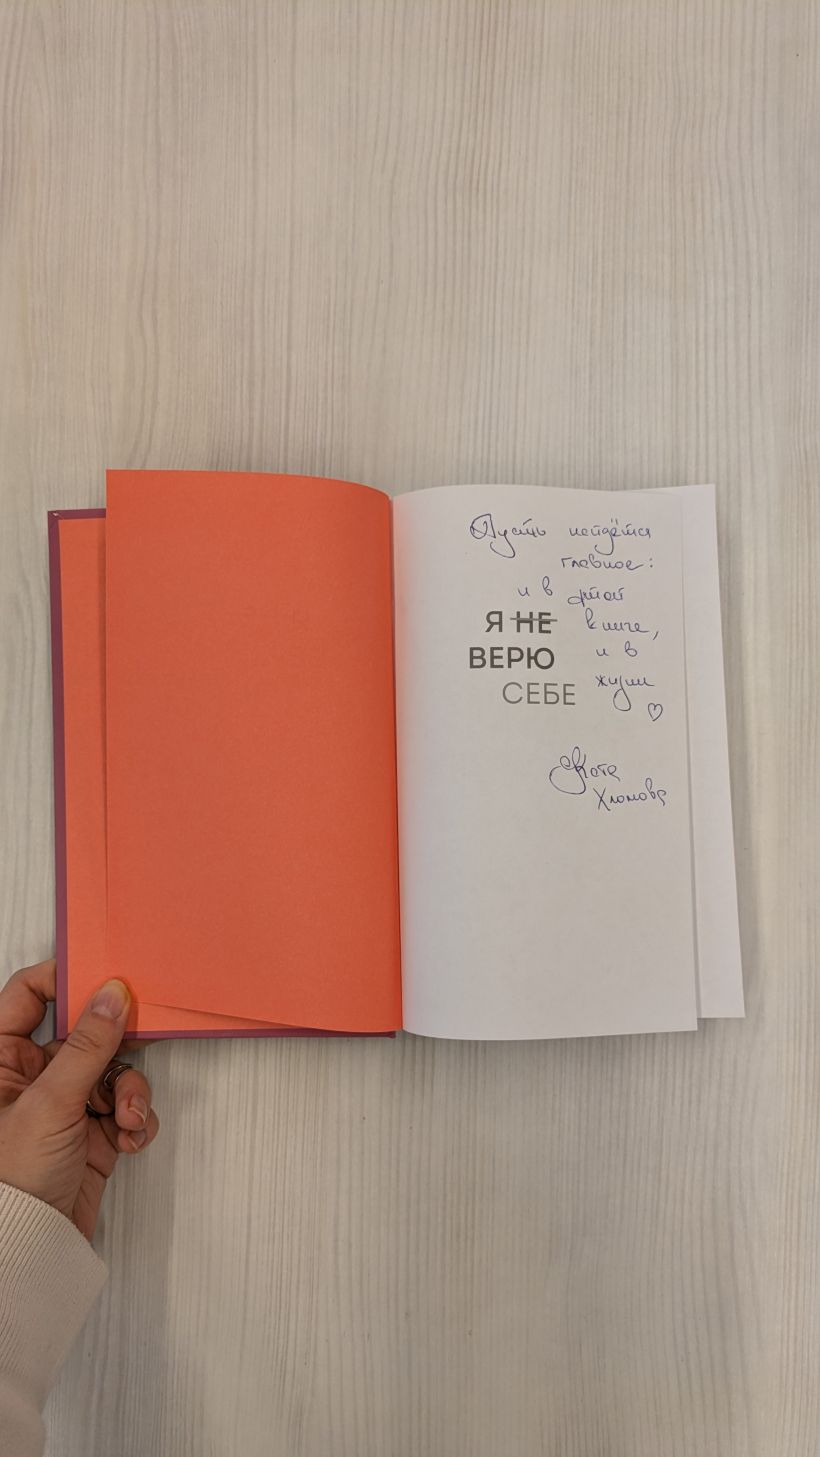 Пусть найдётся
главное:
и в этой
книге,
и в
жизни
♡
Я НЕ
ВЕРЮ
СЕБЕ
Катя
Хломова